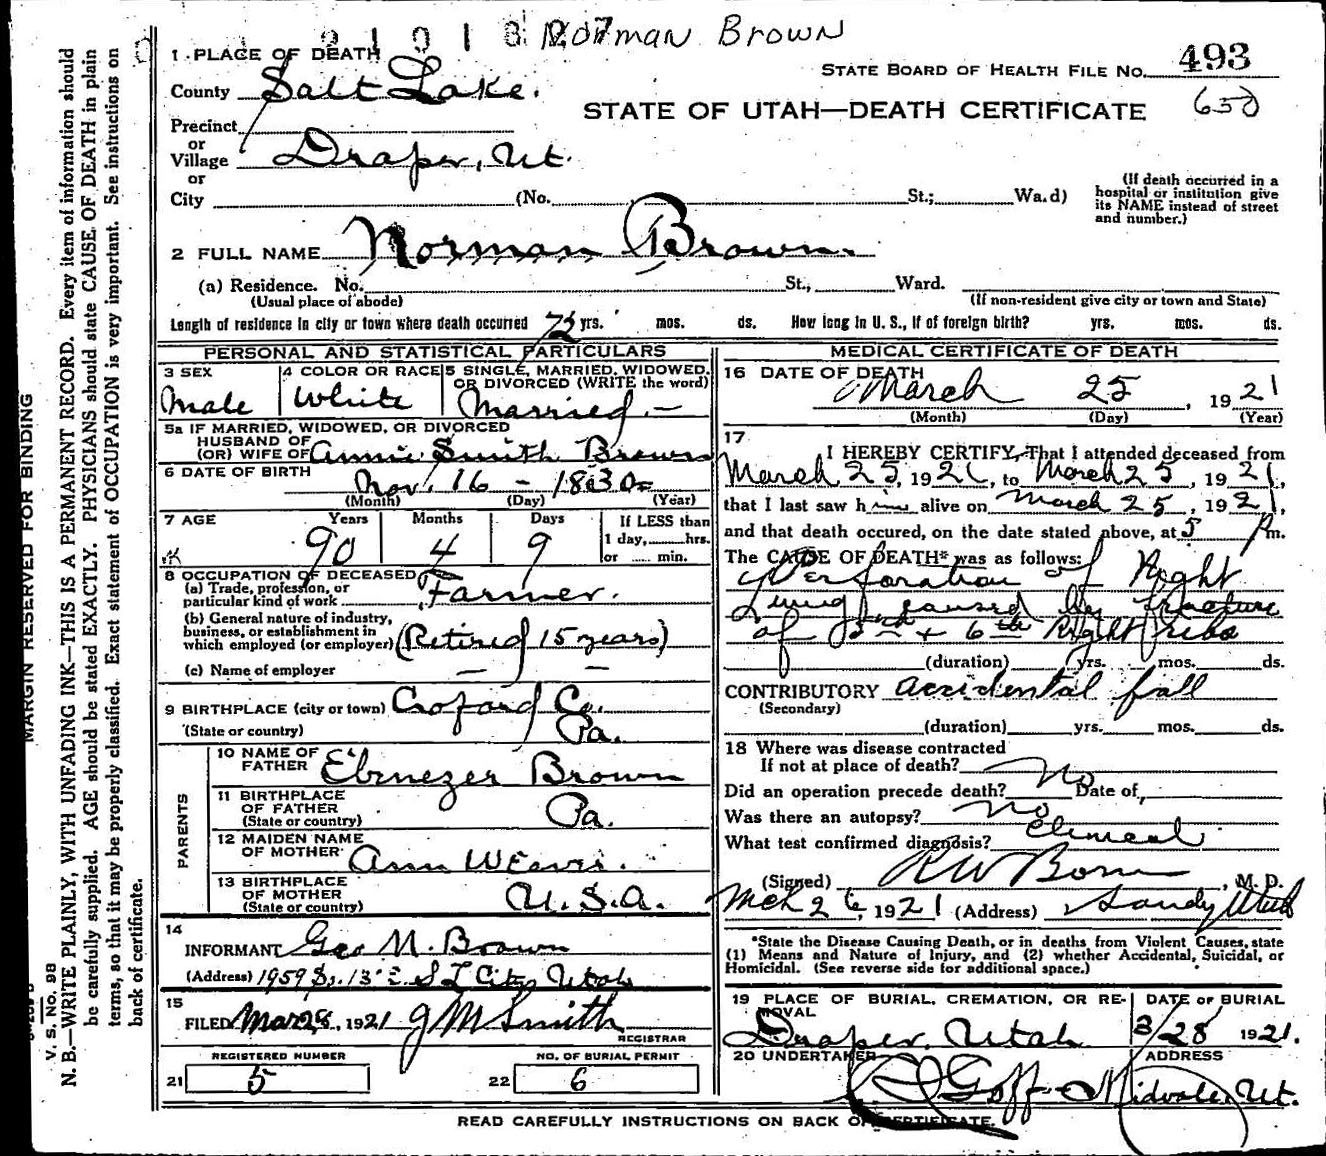 Norman Brown
1 PLACE OF DEATH
STATE BOARD OF HEALTH FILE NO. 493
County Salt Lake.
STATE OF UTAH—DEATH CERTIFICATE 650
Precinct
or
Village Draper, Ut.
or
City (No. St.; Ward)
(If death occurred in a
hospital or institution give
its NAME instead of street
and number.)
2 FULL NAME Norman Brown.
(a) Residence. No. St., Ward.
(Usual place of abode) (If non-resident give city or town and State)
Length of residence in city or town where death occurred 72 yrs. mos. ds. How long in U. S., if of foreign birth? yrs. mos. ds.
PERSONAL AND STATISTICAL PARTICULARS
3 SEX
Male
4 COLOR OR RACE
White
5 SINGLE, MARRIED, WIDOWED,
OR DIVORCED (WRITE the word)
Married.—
5a IF MARRIED, WIDOWED, OR DIVORCED
HUSBAND OF
(OR) WIFE OF Annie Smith Brown
6 DATE OF BIRTH
Nov. 16 - 1830
(Month) (Day) (Year)
7 AGE Years Months Days
90 4 9
If LESS than
1 day, hrs.
or min.
8 OCCUPATION OF DECEASED
(a) Trade, profession, or
particular kind of work Farmer.
(b) General nature of industry,
business, or establishment in
which employed (or employer) (Retired 15 years)
(c) Name of employer — —
9 BIRTHPLACE (city or town) Croford Co.
(State or country) Pa.
PARENTS
10 NAME OF
FATHER Ebenezer Brown
11 BIRTHPLACE
OF FATHER
(State or country) Pa.
12 MAIDEN NAME
OF MOTHER Ann Weaver.
13 BIRTHPLACE
OF MOTHER
(State or country) U.S.A.
14
INFORMANT Geo M. Brown
(Address) 1959 So. 13 E. S L City, Utah
15
FILED Mar 28, 1921 J M Smith
REGISTRAR
REGISTERED NUMBER NO. OF BURIAL PERMIT
21 5 22 6
MEDICAL CERTIFICATE OF DEATH
16 DATE OF DEATH
March 25, 1921
(Month) (Day) (Year)
17
I HEREBY CERTIFY, That I attended deceased from
March 25, 1921, to March 25, 1921,
that I last saw him alive on March 25, 1921,
and that death occured, on the date stated above, at 5 Pm.
The CAUSE OF DEATH* was as follows:
Perforation of Right
Lung, caused by fracture
of 5th + 6th Right ribs
(duration) yrs. mos. ds.
CONTRIBUTORY accidental fall
(Secondary)
(duration) yrs. mos. ds.
18 Where was disease contracted
If not at place of death?
Did an operation precede death? No Date of,
Was there an autopsy? No
What test confirmed diagnosis? Clinical
(Signed) R W , M. D.
Mch 26, 1921 (Address) Sandy Utah
*State the Disease Causing Death, or in deaths from Violent Causes, state
(1) Means and Nature of Injury, and (2) whether Accidental, Suicidal, or
Homicidal. (See reverse side for additional space.)
19 PLACE OF BURIAL, CREMATION, OR RE-
MOVAL
Draper, Utah
DATE OF BURIAL
3/28 1921.
20 UNDERTAKER ADDRESS
Goff - Midvale, Ut.
READ CAREFULLY INSTRUCTIONS ON BACK OF CERTIFICATE.
MARGIN RESERVED FOR BINDING
V. S. NO. 98
N. B.—WRITE PLAINLY, WITH UNFADING INK—THIS IS A PERMANENT RECORD. Every item of information should
be carefully supplied. AGE should be stated EXACTLY. PHYSICIANS should state CAUSE OF DEATH in plain
terms, so that it may be properly classified. Exact statement of OCCUPATION is very important. See instructions on
back of certificate.